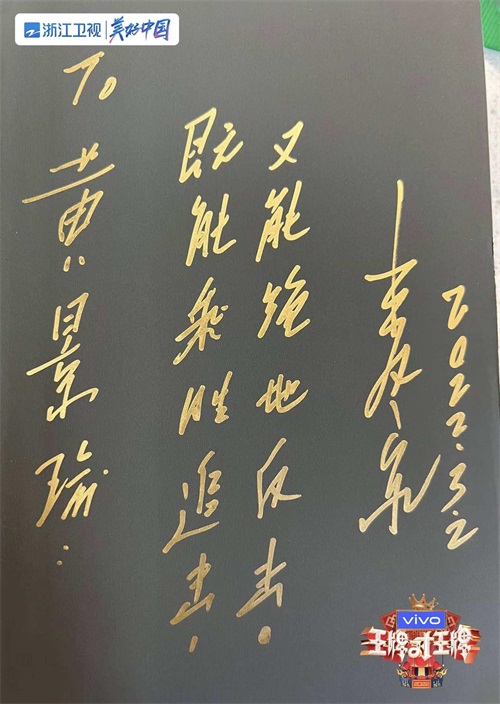 浙江卫视 | 美好中国
To 黄景瑜:
既能乘胜追击!
又能绝地反击!
2022.3.2
vivo
王牌对王牌